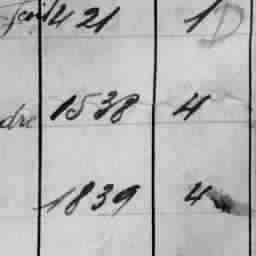 421 1
dre 1538 4
1839 4